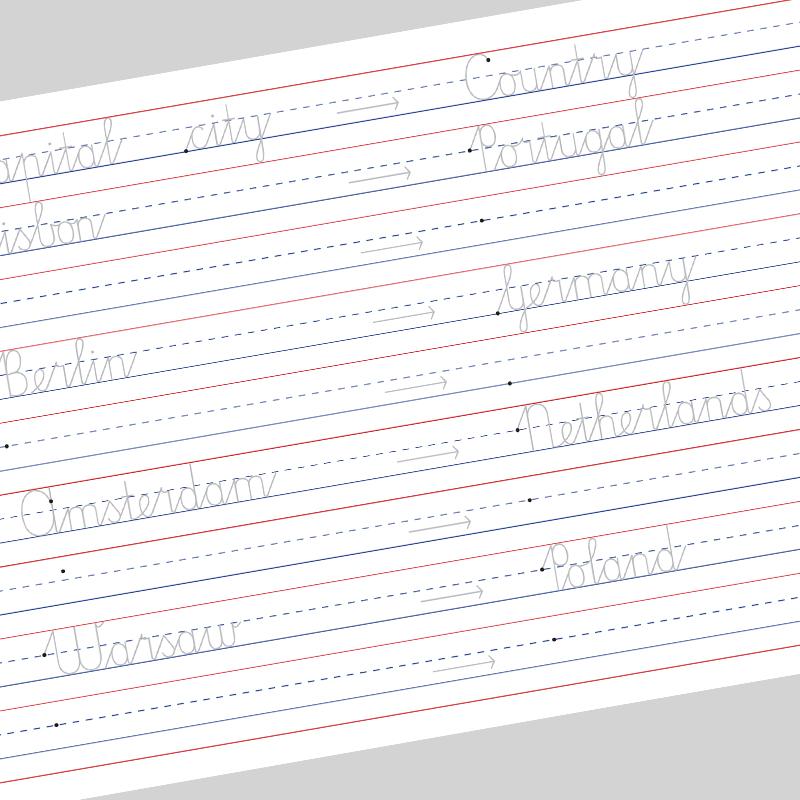 apital city → Country
isbon → Portugal
Berlin → Germany
Amsterdam → Netherlands
Warsaw → Poland